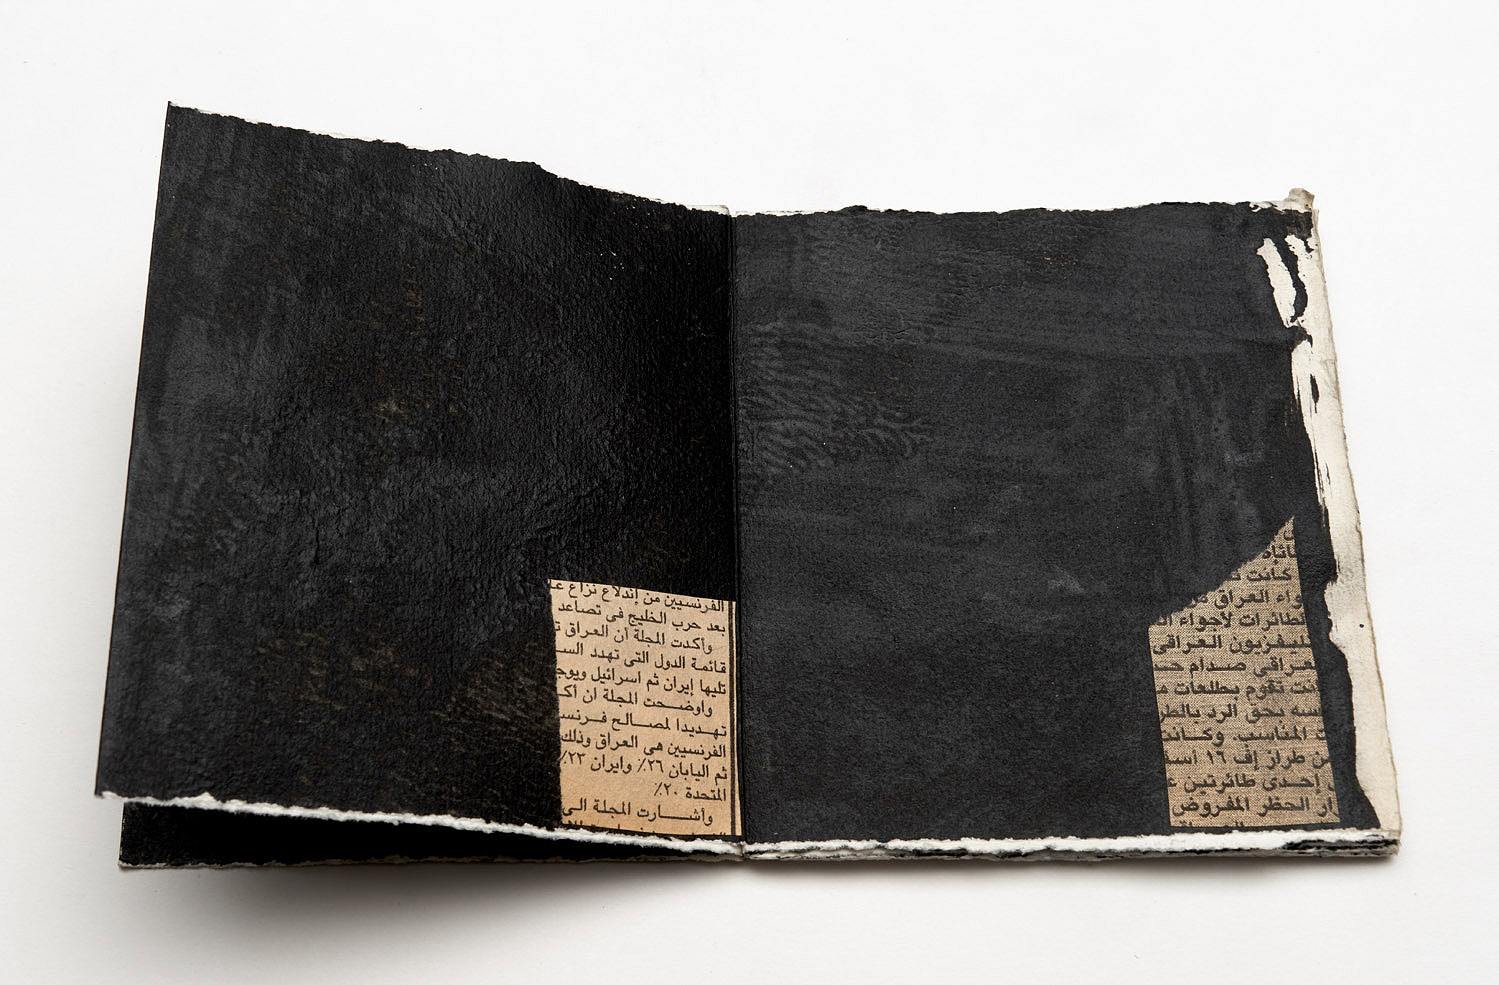 الفرنسيين من إندلاع نزاع عـ
بعد حرب الخليج فى تصاعد
وأكدت المجلة أن العراق تـ
قائمة الدول التى تهدد السـ
تليها إيران ثم اسرائيل ويوجـ
واوضحت المجلة ان أكـ
تهـديدا لمصـالح فـرنسـ
الفرنسيين هى العراق وذلك
ثم اليابان ٢٦٪ وايران ٢٣٪
المتحدة ٢٠٪
وأشـــارت المجلة الـى
كانت تـ
ـواء العراق
ـلطائرات لأجواء الـ
ـليفزيون العـراقى
ـعـراقى صـدام حسـ
ـانت تقوم بطلعات مـ
ـسه بحق الرد بالطر
ـت المناسب. وكـانت
ـن طراز إف ١٦ أسـ
إحـدى طائرتين عـ
ـار الحظر المفروض